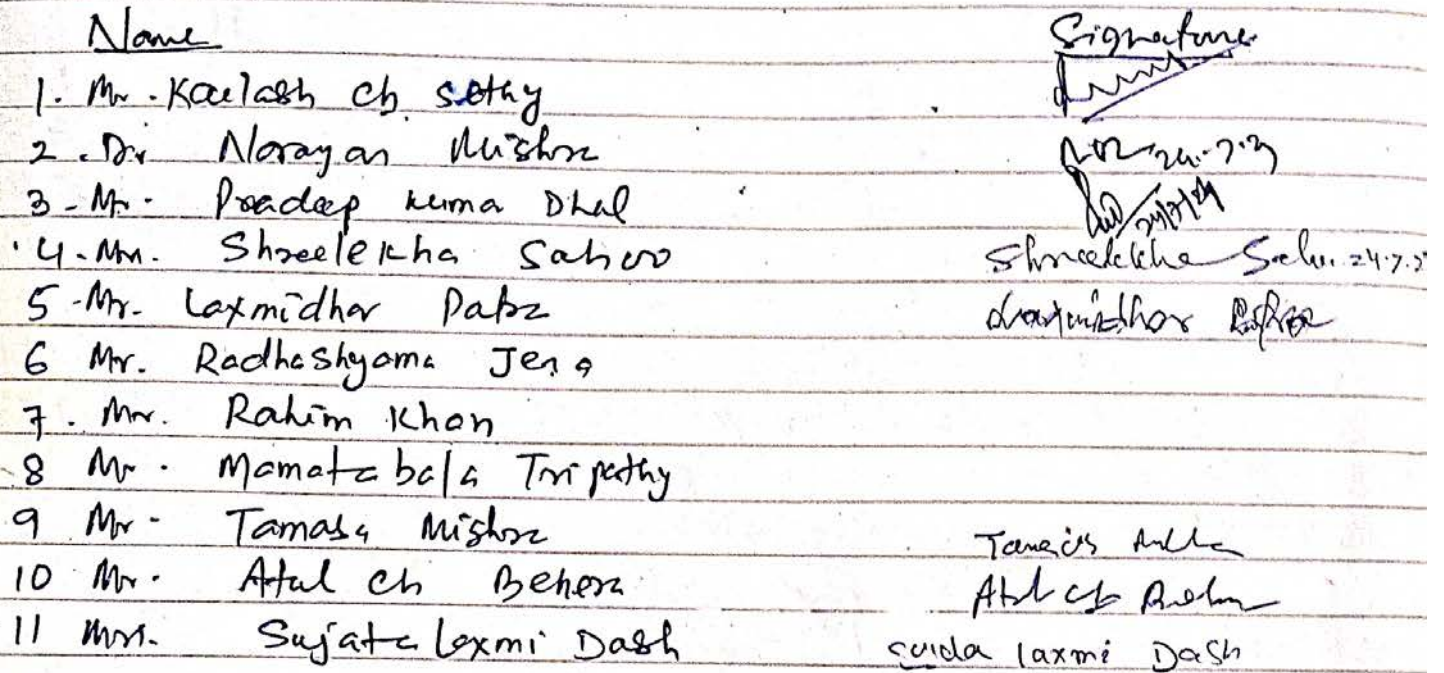 Name Signature
1. Mr. Kailash ch sethy
2. Dr Narayan Mishra
3 - Mr. Pradeep kuma Dhal 24/7/24
4. Mrs. Shreelekha Sahoo Shreelekha Sahu 24.7.2
5 - Mr. Laxmidhar Patra Laxmidhar Patra
6 Mr. Radhashyama Jena
7. Mr. Rahim Khan
8 Mr. Mamatabala Tripathy
9 Mr - Tamasa Mishra
10 Mr. Atul ch Behera Atul ch Behera
11 Mrs. Sujata Laxmi Dash Laxmi Dash